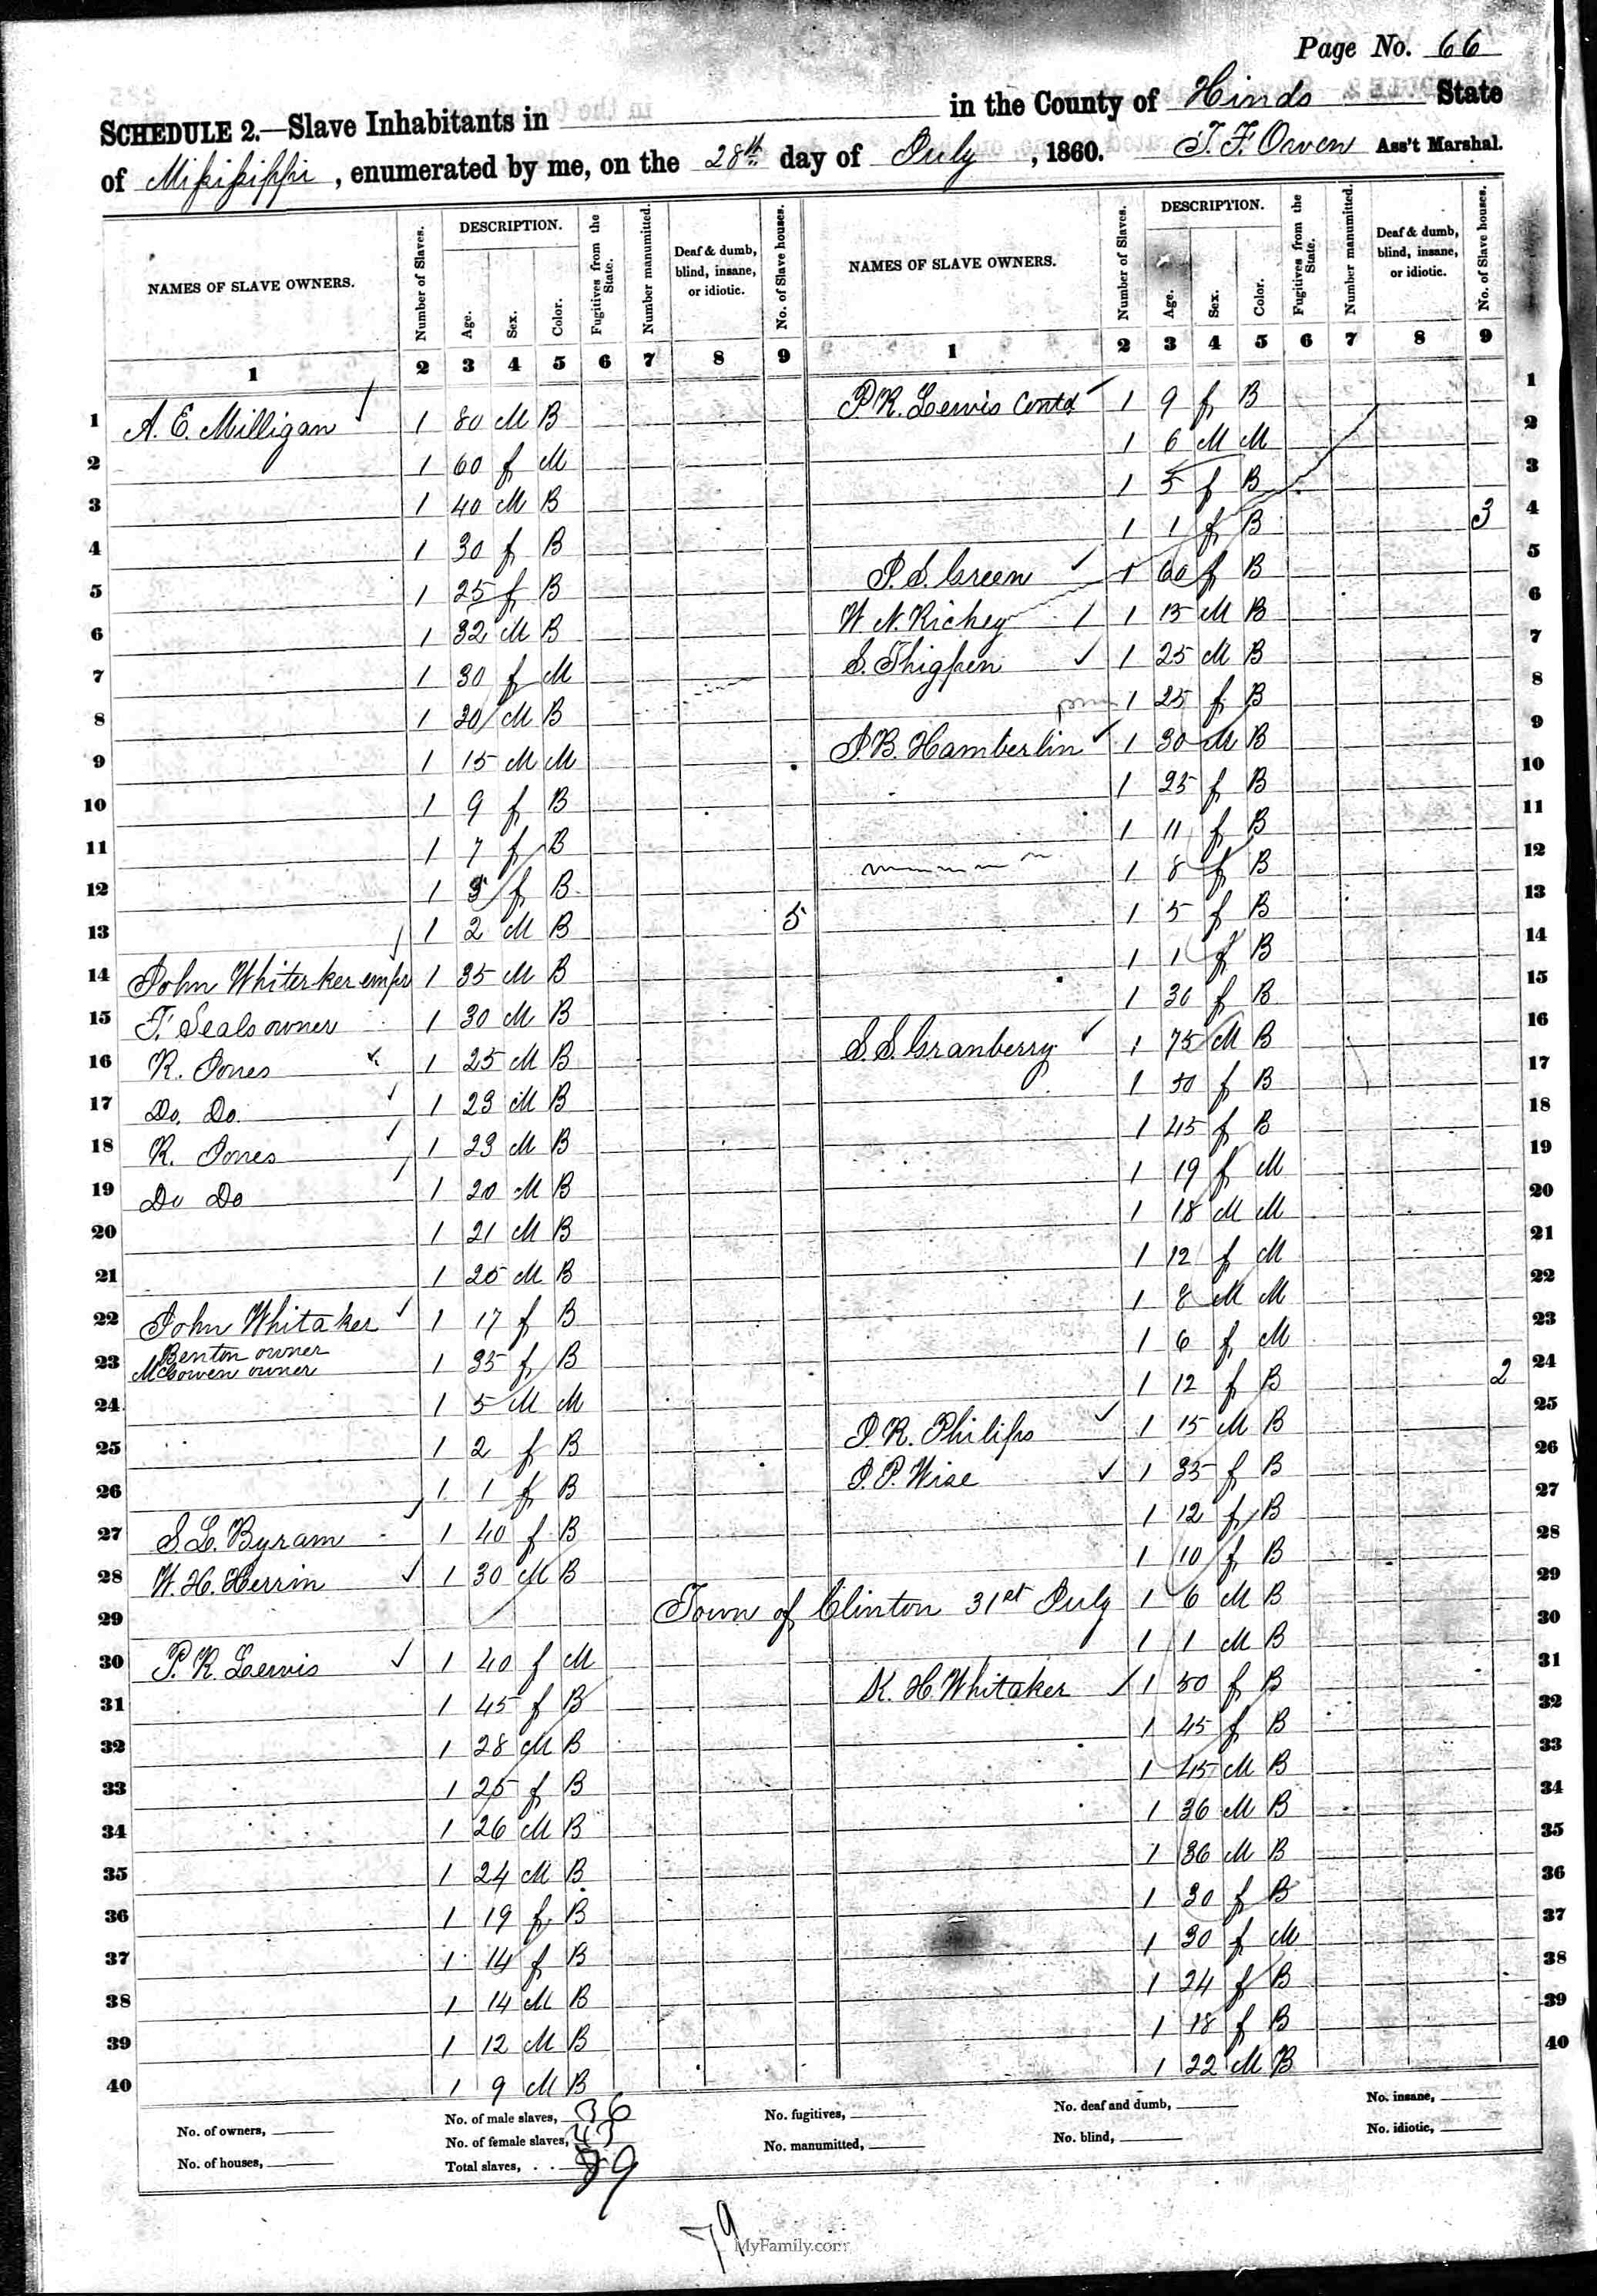 Page No. 66
SCHEDULE 2.—Slave Inhabitants in in the County of Hinds State
of Mississippi, enumerated by me, on the 28th day of July, 1860. T. F. Owen Ass't Marshal.
NAMES OF SLAVE OWNERS. Number of Slaves. DESCRIPTION. Age. Sex. Color. Fugitives from the State. Number manumitted. Deaf & dumb, blind, insane, or idiotic. No. of Slave houses.
1 2 3 4 5 6 7 8 9
1 A. E. Milligan 1 80 M B
2 1 60 f M
3 1 40 M B
4 1 30 f B
5 1 25 f B
6 1 32 M B
7 1 30 f M
8 1 30 M B
9 1 15 M M
10 1 9 f B
11 1 7 f B
12 1 3 f B
13 1 2 M B 5
14 John Whiterker empr 1 35 M B
15 F. Seals owner 1 30 M B
16 R. Jones 1 25 M B
17 Do. Do. 1 23 M B
18 R. Jones 1 23 M B
19 Do Do 1 20 M B
20 1 21 M B
21 1 25 M B
22 John Whitaker 1 17 f B
Benton owner
23 McCowen owner 1 35 f B
24 1 5 M M
25 1 2 f B
26 1 1 f B
27 S. L. Byram 1 40 f B
28 W. H. Herrin 1 30 M B
29
30 P. R. Lewis 1 40 f M
31 1 45 f B
32 1 28 M B
33 1 25 f B
34 1 26 M B
35 1 24 M B
36 1 19 f B
37 1 14 f B
38 1 14 M B
39 1 12 M B
40 1 9 M B
NAMES OF SLAVE OWNERS. Number of Slaves. DESCRIPTION. Age. Sex. Color. Fugitives from the State. Number manumitted. Deaf & dumb, blind, insane, or idiotic. No. of Slave houses.
1 2 3 4 5 6 7 8 9
P. R. Lewis Contd 1 9 f B 1
1 6 M M 2
1 5 f B 3
1 1 f B 3 4
J. S. Green 1 60 f B 5
W. N. Richey 1 15 M B 6
S. Thigpen 1 25 M B 7
1 25 f B 8
J. B. Hamberlin 1 30 M B 9
1 25 f B 10
1 11 f B 11
1 8 f B 12
1 5 f B 13
1 1 f B 14
1 30 f B 15
S. S. Granberry 1 75 M B 16
1 50 f B 17
1 45 f B 18
1 19 f M 19
1 18 M M 20
1 12 f M 21
1 8 M M 22
1 6 f M 23
1 12 f B 2 24
J. R. Philips 1 15 M B 25
J. P. Wise 1 35 f B 26
1 12 f B 27
1 10 f B 28
Town of Clinton 31st July 1 6 M B 29
1 1 M B 30
K. H. Whitaker 1 50 f B 31
1 45 f B 32
1 45 M B 33
1 36 M B 34
1 36 M B 35
1 30 f B 36
1 30 f M 37
1 24 f B 38
1 18 f B 39
1 22 M B 40
No. of owners, No. of male slaves, 36 No. fugitives, No. deaf and dumb, No. insane,
No. of houses, No. of female slaves, 43 No. manumitted, No. blind, No. idiotic,
Total slaves, 79
79
MyFamily.com